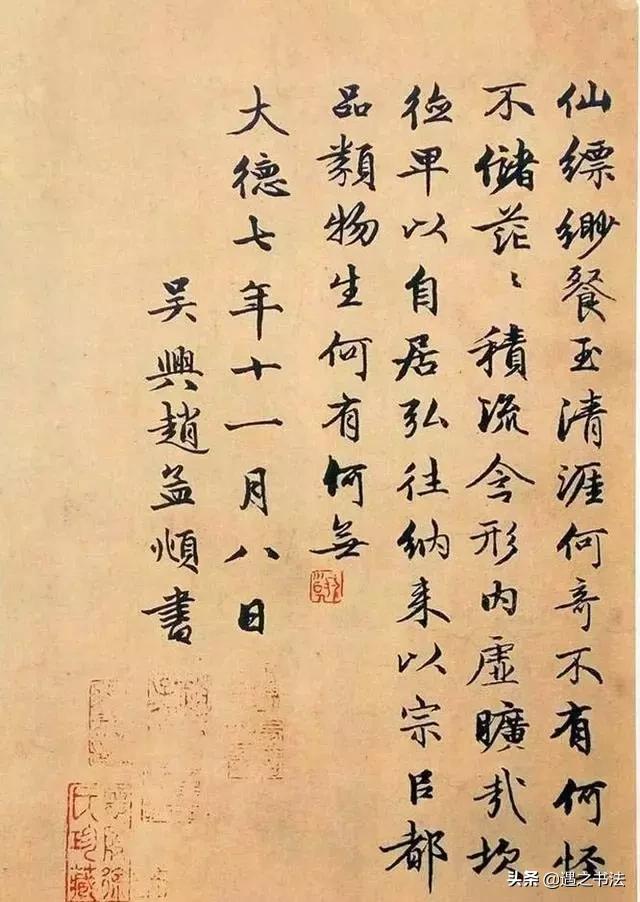 仙縹緲餐玉清涯何奇不有何怪
不儲茫〻積流含形内虛曠哉坎
德卑以自居弘往納来以宗㠯都
品類物生何有何無
大德七年十一月八日
吴興趙孟頫書
氏珍藏
头条 @遇之书法